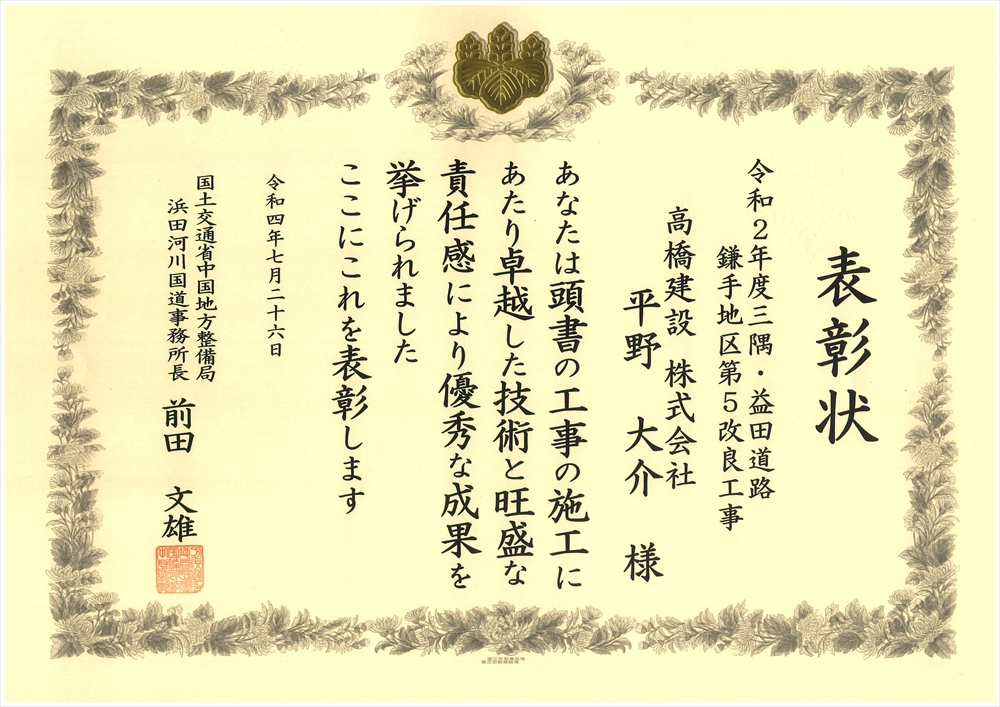 表彰状
令和２年度三隅・益田道路
鎌手地区第５改良工事
高橋建設 株式会社
平野 大介 様
あなたは頭書の工事の施工に
あたり卓越した技術と旺盛な
責任感により優秀な成果を
挙げられました
ここにこれを表彰します
令和四年七月二十六日
国土交通省中国地方整備局
浜田河川国道事務所長 前田 文雄